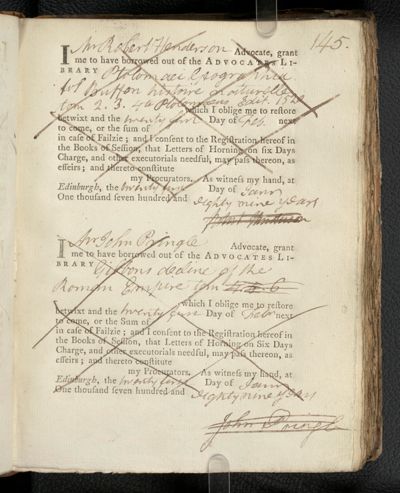 145.
I Mr Robert Henderson Advocate, grant
me to have borrowed out of the ADVOCATES LI-
BRARY Ptolomaei Geographia
fol Buffon histoire naturelle
tom 2. 3. 4to Ptolomaeus Edit. 152
which I oblige me to restore
betwixt and the twenty first Day of Feb. next
to come, or the sum of
in case of Failzie; and I consent to the Registration hereof in
the Books of Session, that Letters of Horning on six Days
Charge, and other executorials needful, may pass thereon, as
effeirs; and thereto constitute
my Procurators. As witness my hand, at
Edinburgh, the twenty first Day of Janry
One thousand seven hundred and eighty nine years
I Mr John Pringle Advocate, grant
me to have borrowed out of the ADVOCATES LI-
BRARY Gibbons decline of the
Roman Empire tom 4. 5. 6
which I oblige me to restore
betwixt and the twenty first Day of Febr next
to come, or the Sum of
in case of Failzie; and I consent to the Registration hereof in
the Books of Session, that Letters of Horning on Six Days
Charge, and other executorials needful, may pass thereon, as
effeirs; and thereto constitute
my Procurators. As witness my hand, at
Edinburgh, the twenty first Day of Janry
One thousand seven hundred and eighty nine years
John Pringle